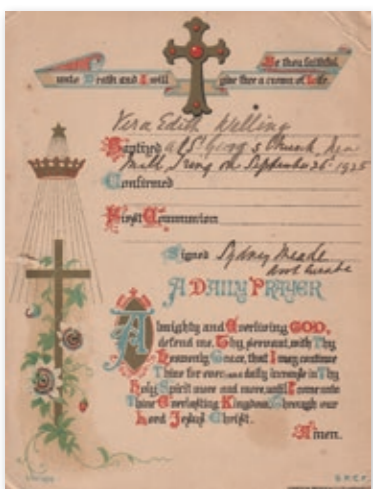 Be thou faithful
unto Death and I will give thee a crown of Life.
Vera Edith Welling
Baptized at St. George's Church, New
Mill, Tring on September 26th 1925
Confirmed
First Communion
Signed Sydney Meade
Asst Curate
A DAILY PRAYER
Almighty and Everliving GOD,
defend me, Thy servant, with Thy
Heavenly Grace, that I may continue
Thine for ever: and daily increase in Thy
Holy Spirit more and more, until I come unto
Thine Everlasting Kingdom, Through our
Lord Jesus Christ.
Amen.
S.P.C.K.